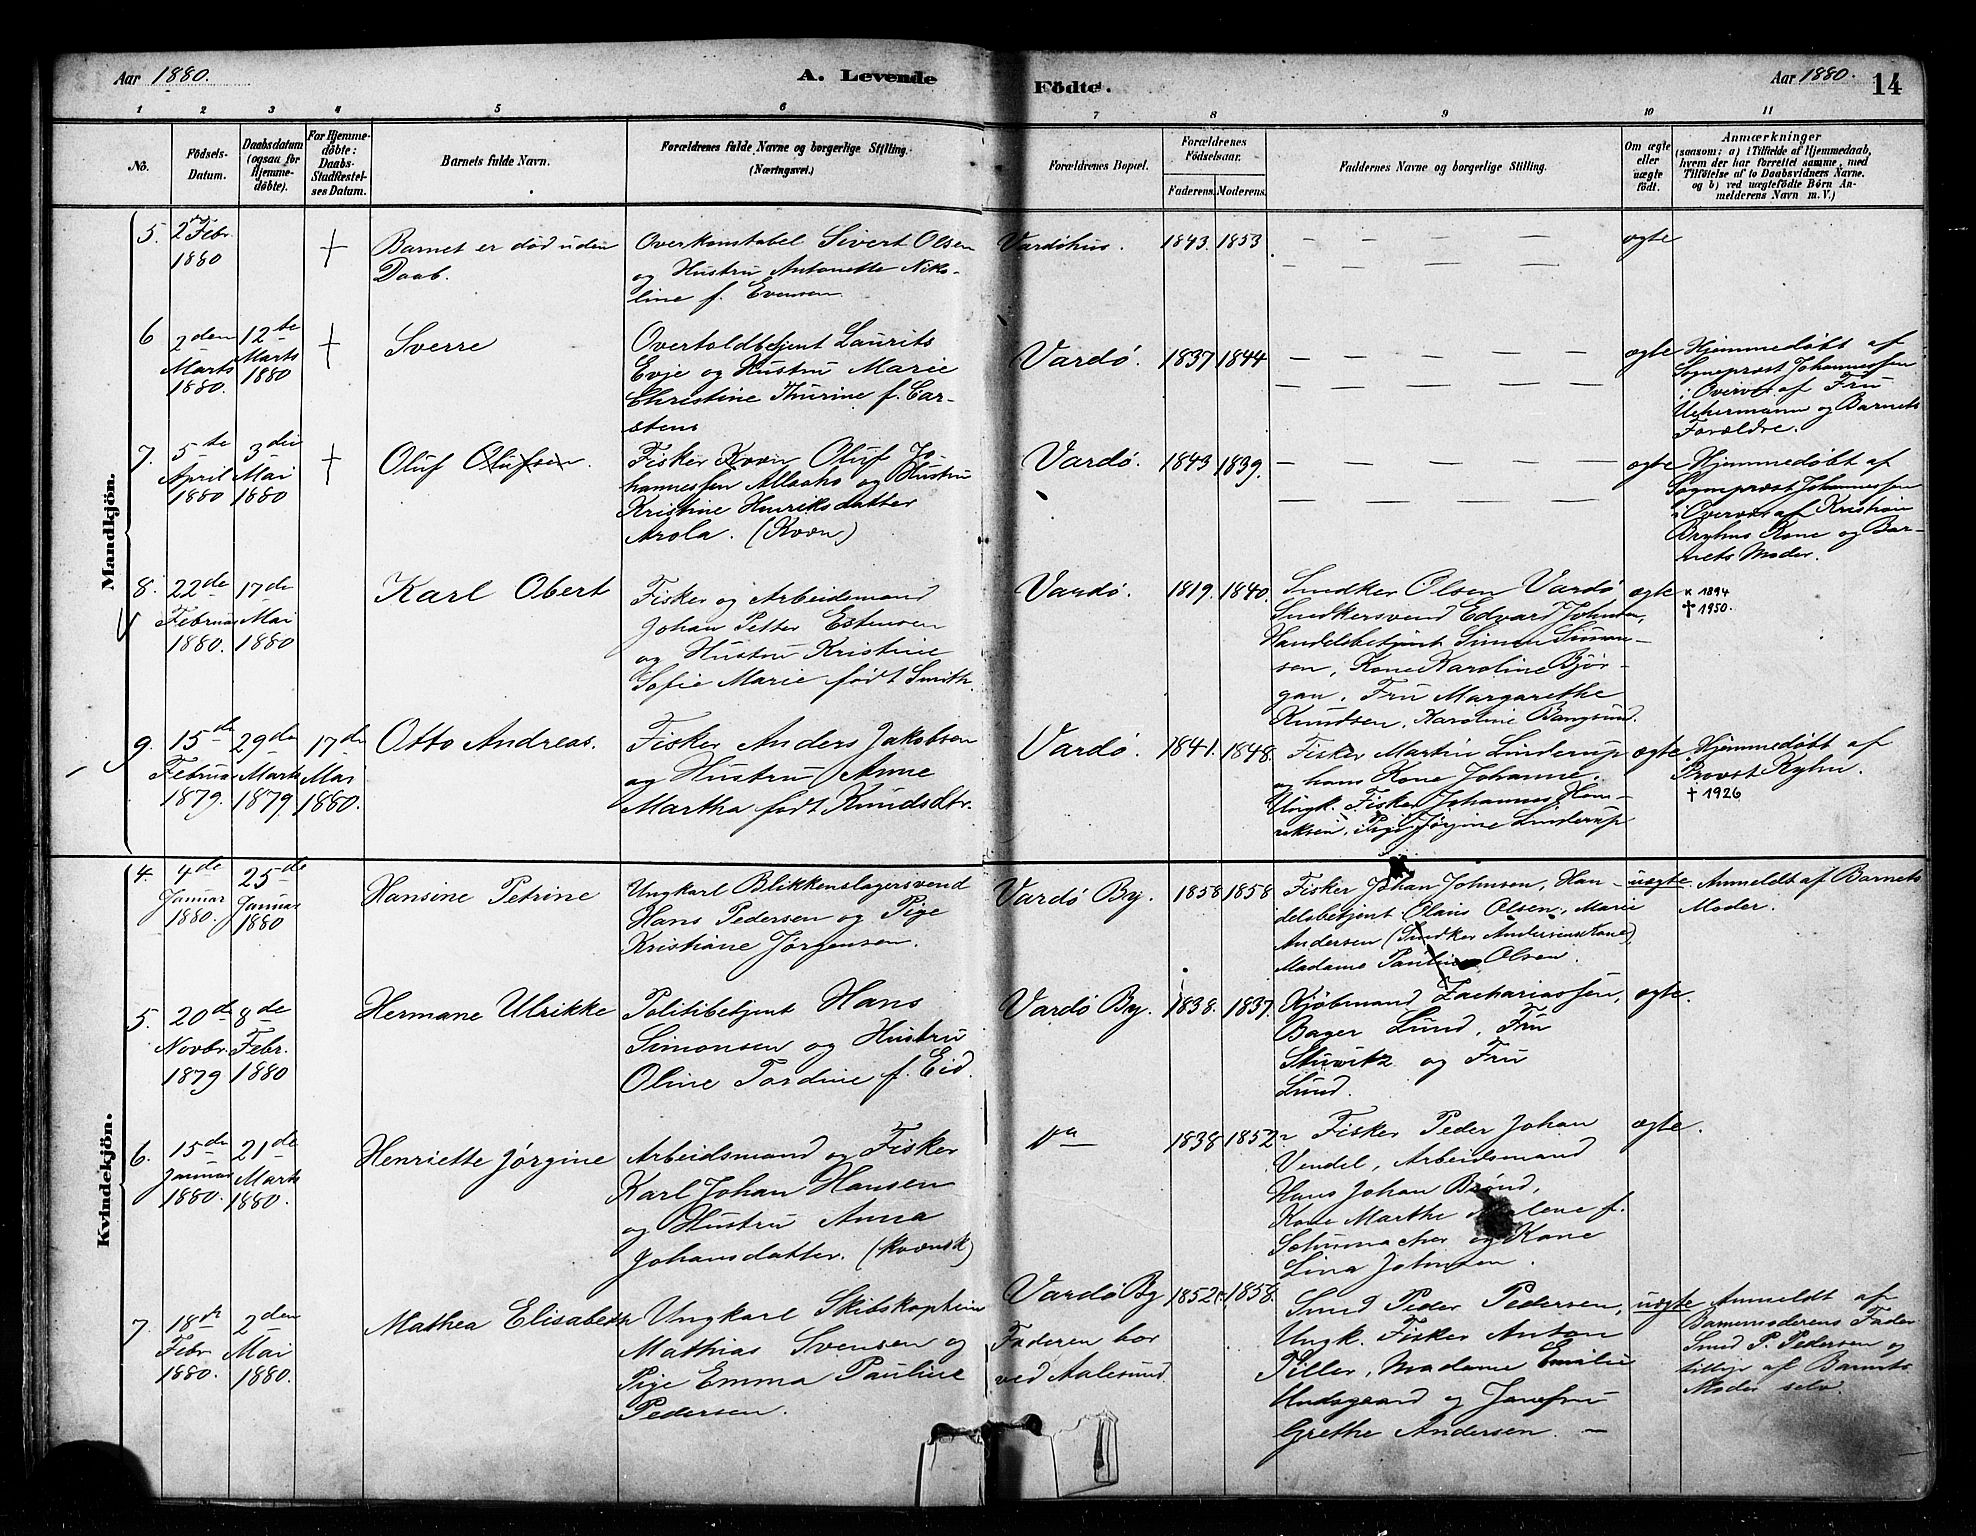 Aar 1880.
A. Levende Födte.
Aar 1880.
14
1 2 3 4 5 6 7 8 9 10 11
No.
Födsels-Datum.
Daabsdatum (ogsaa for Hjemmedöbte).
For Hjemmedöbte: Daabs-Stadfæstelses Datum.
Barnets fulde Navn.
Forældrenes fulde Navne og borgerlige Stilling. (Næringsvei.)
Forældrenes Bopæl.
Forældrenes Födselsaar.
Faderens. Moderens.
Faddernes Navne og borgerlige Stilling.
Om ægte eller uægte födt.
Anmærkninger
(saasom: a) i Tilfælde af Hjemmedaab,
hvem der har forrettet samme, med
Tilföielse af to Daabsvidners Navne.
og b) ved uægtefödte Börn Anmelderens Navn m. V.)
Mandkjön.
5. 2 Febr. 1880
+
Barnet er död uden
Daab.
Overkonstabel Sivert Olsen
og Hustru Antonette Niko-
line f. Evensen
Vardöhus.
1843. 1853
ægte
6 2den Marts 1880.
12te Marts 1880
+
Sverre
Overtoldbetjent Laurits
Evje og Hustru Marie
Christine Thurine f. Car-
stens
Vardö.
1837 1844
ægte
Hjemmedöbt af
Sogneprost Johannessen
i Overvær af Fru
Uchermann og Barnets
Forældre.
7. 5te April 1880
3die Mai 1880
+
Oluf Olufsen.
Fisker Kvæn Oluf Jo-
hannessen Allaaho og Hustru
Kristine Henriksdatter
Arola. (Kvæn)
Vardö.
1843 1839.
ægte
Hjemmedöbt af
Sogneprost Johannessen
i Overvær af Kristian
Bryhns Kone og Bar-
nets Moder.
8. 22de Februar 1880.
17de Mai 1880
Karl Obert
Fisker og Arbeidsmand
Johan Petter Estensen
og Hustru Kristine
Sofie Marie födt Smith.
Vardö.
1819. 1840.
Snedker Olsen Vardö
Snedkersvend Edvard Johnsen,
Handelsbetjent Simon Simon-
sen, Kone Karoline Björ-
gan, Fru Margarethe
Knudsen, Karoline Bangsund.
ægte
x 1894
† 1950.
9. 15de Februar 1879.
29de Marts 1879.
17de Mai 1880.
Otto Andreas.
Fisker Anders Jakobsen
og Hustru Anne
Martha födt Knudsdtr.
Vardö.
1841. 1848.
Fisker Martin Linderup
og hans Kone Johanne,
Ungk. Fisker Johannes Hen-
riksen, Pige Jörgine Linderup
ægte
Hjemmedöbt af
Provst Kyhn.
† 1926
Kvindekjön.
4. 4de Januar 1880.
25de Januar 1880
Hansine Petrine
Ungkarl Blikkenslagersvend
Hans Pedersen og Pige
Kristiane Jörgensen.
Vardö By.
1858 1858
Fisker Johan Johnsen, Han-
delsbetjent Olaus Olsen, Marie
Andersen (Snedker Andersens Kone),
Madame Pauline Olsen.
uægte.
Anmeldt af Barnets
Moder.
5. 20de Novbr. 1879
8de Febr. 1880
Hermane Ulrikke
Politibetjent Hans
Simonsen og Hustru
Oline Tordine f. Eid.
Vardö By.
1838. 1837.
Kjöbmand Zachariassen,
Bager Lund, Fru
Stuwitz og Fru
Lund.
ægte.
6. 15de Januar 1880.
21de Marts 1880.
Henriette Jörgine
Arbeidsmand og Fisker
Karl Johan Hansen
og Hustru Anna
Johansdatter. (kvænsk)
"
1838 1852
Fisker Peder Johan
Vendel, Arbeidsmand
Hans Johan Brönd,
Kone Marthe
Schumacher og Kone
Lina Johnsen.
ægte.
7. 18de Febr 1880.
2den Mai 1880.
Mathea Elisabeth
Ungkarl Skibskaptein
Mathias Svensen og
Pige Emma Pauline
Pedersen.
Vardö By
Faderen bor
ved Aalesund.
1852 1858.
Smed Peder Pedersen,
Ungk. Fisker Anton
Tiller, Madame Emilie
Undsgaard og Jomfru
Grethe Andersen.
uægte
Anmeldt af
Barnemoderens Fader
Smed P. Pedersen og
tillige af Barnets
Moder selv.